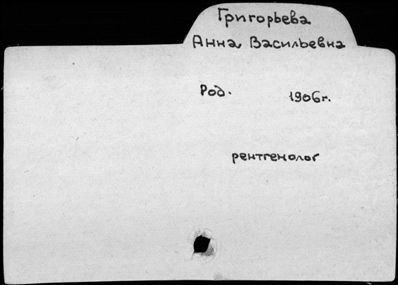 Григорьева
Анна Васильевна
Род. 1906г.
рентгенолог